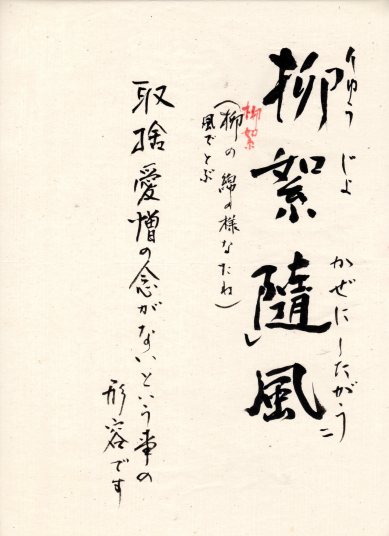 柳絮隨風
りゅう じょ かぜにしたがう
柳絮
(柳の綿の様なたね)
風でとぶ
取捨愛憎の念がないという事の
形容です